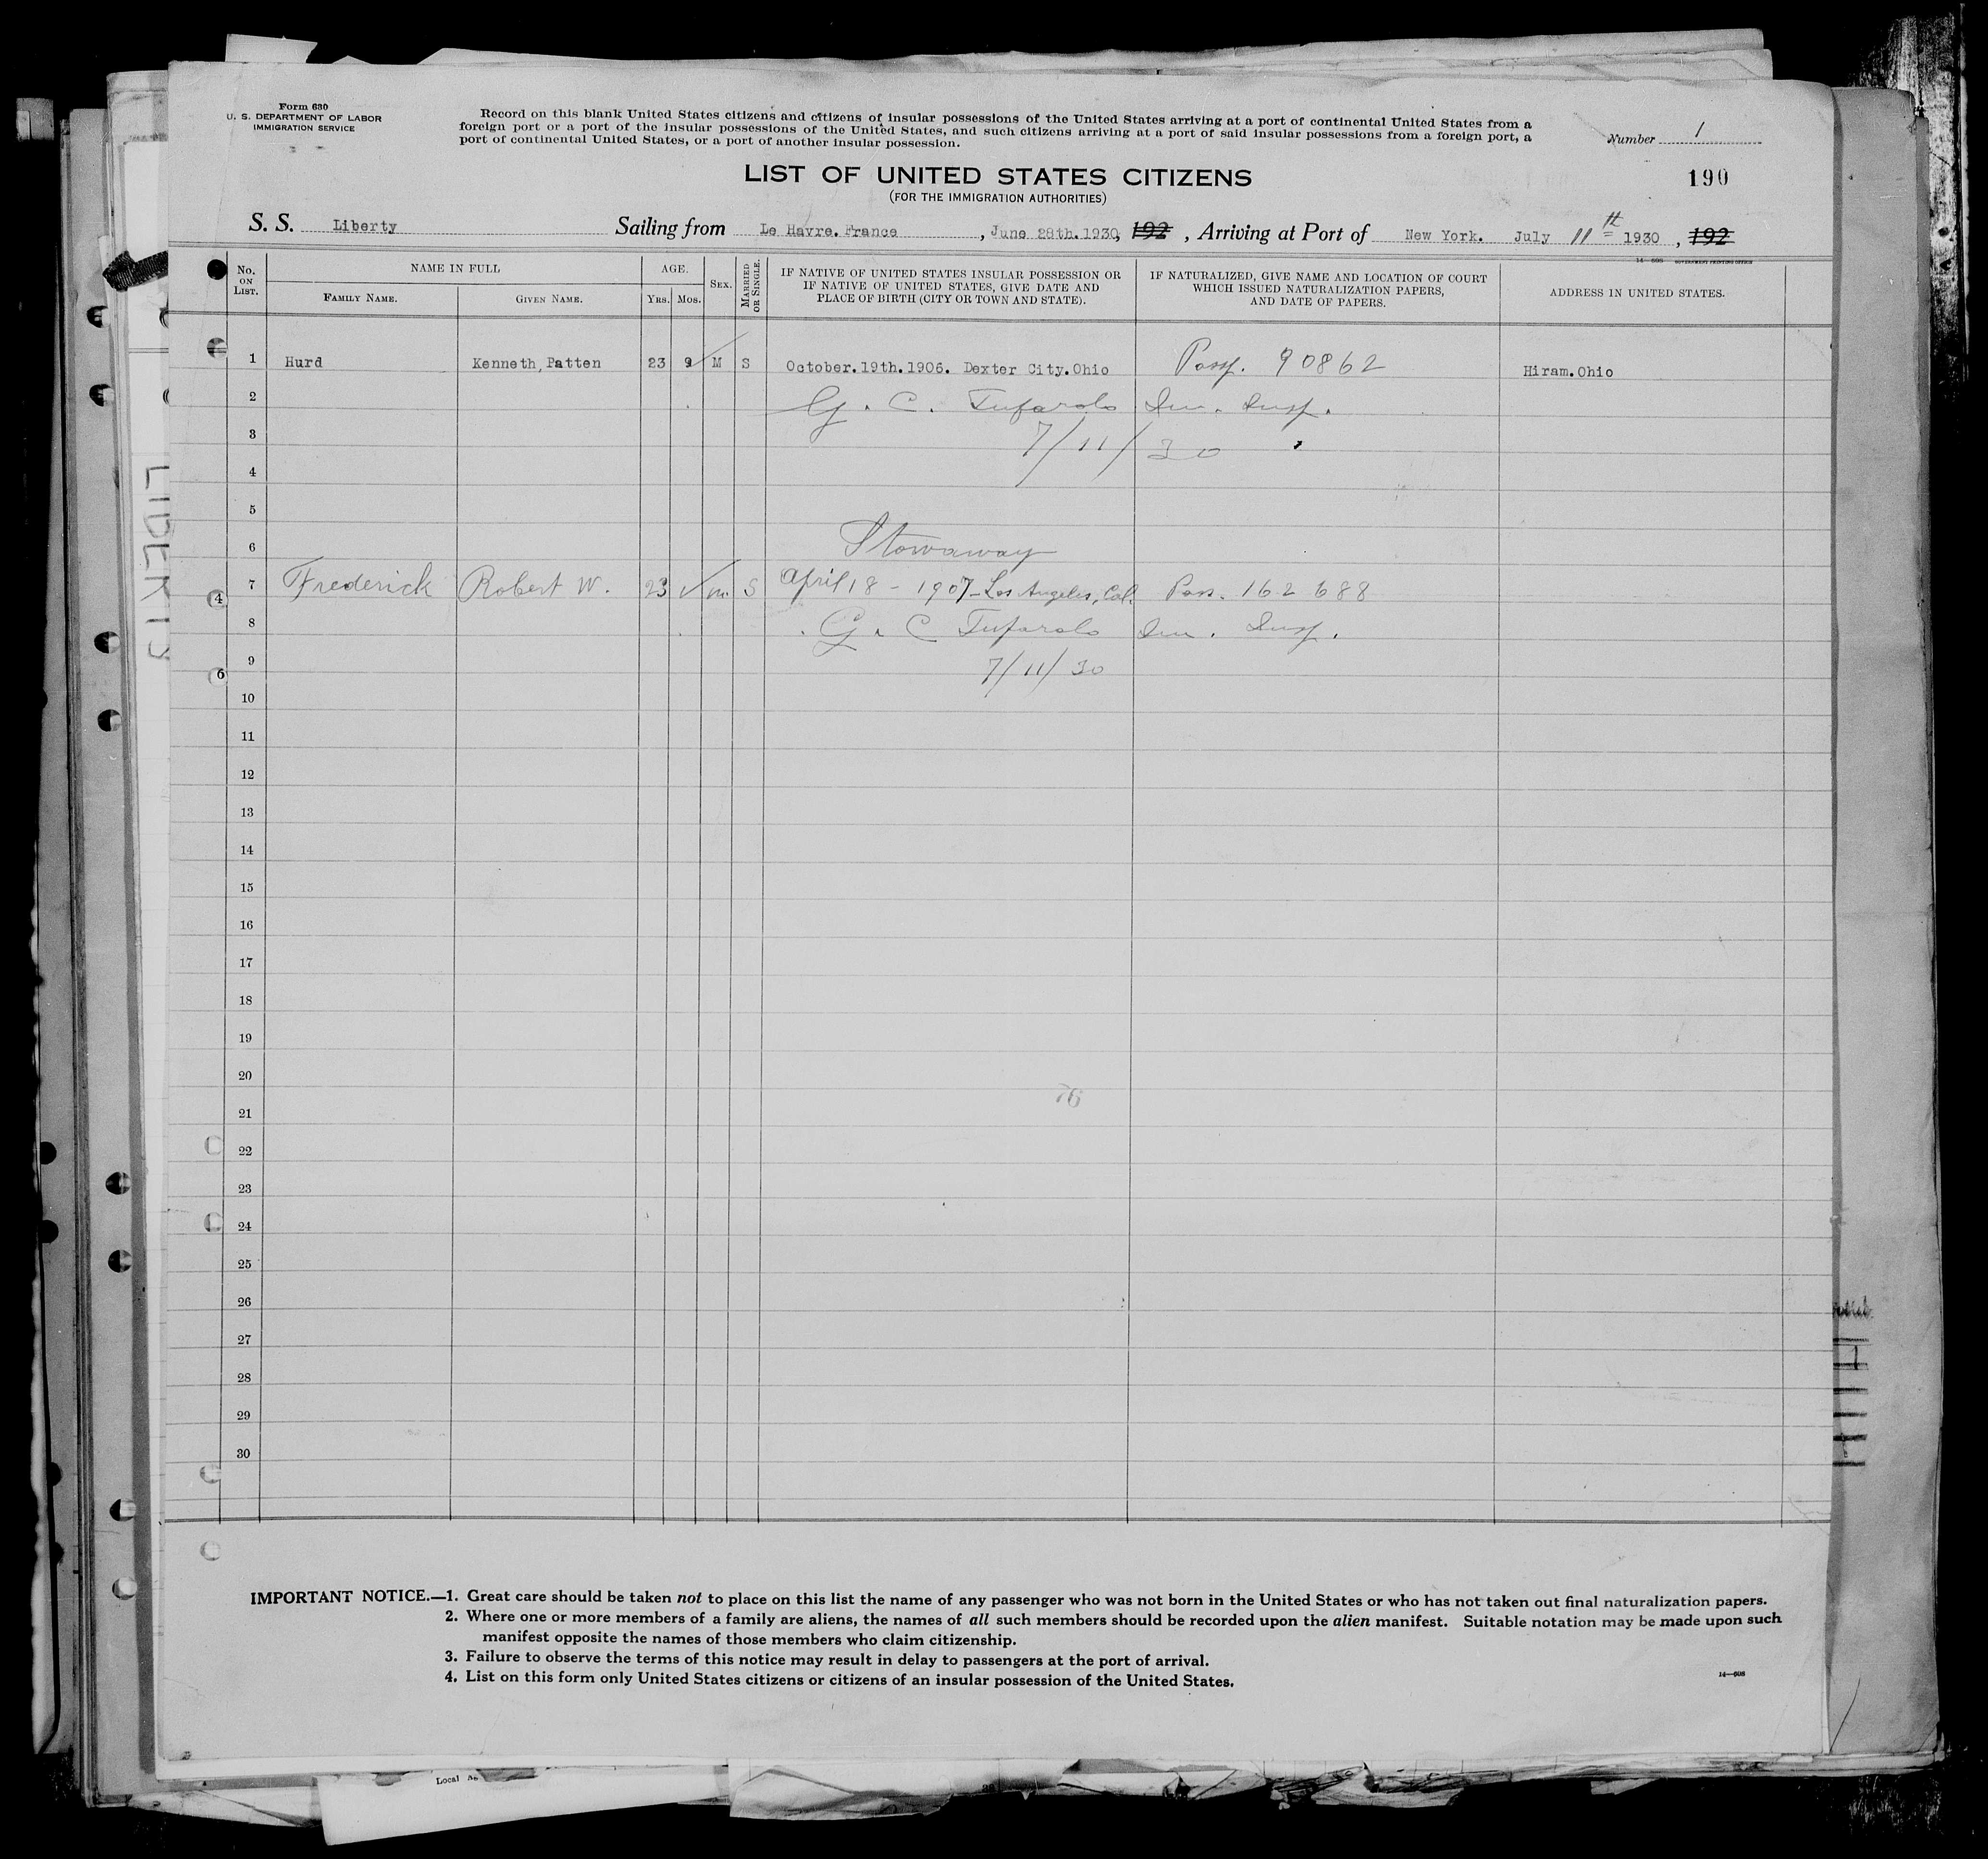 Form 630
U. S. DEPARTMENT OF LABOR
IMMIGRATION SERVICE
Record on this blank United States citizens and citizens of insular possessions of the United States arriving at a port of continental United States from a
foreign port or a port of the insular possessions of the United States, and such citizens arriving at a port of said insular possessions from a foreign port, a
port of continental United States, or a port of another insular possession.
Number 1
190
LIST OF UNITED STATES CITIZENS
(FOR THE IMMIGRATION AUTHORITIES)
S. S. Liberty Sailing from Le Havre. France, June 28th. 1930, 192, Arriving at Port of New York. July 11th 1930, 192
14—608 GOVERNMENT PRINTING OFFICE
No. ON LIST.
NAME IN FULL
FAMILY NAME.
GIVEN NAME.
AGE.
YRS. MOS.
SEX.
MARRIED OR SINGLE.
IF NATIVE OF UNITED STATES INSULAR POSSESSION OR
IF NATIVE OF UNITED STATES, GIVE DATE AND
PLACE OF BIRTH (CITY OR TOWN AND STATE).
IF NATURALIZED, GIVE NAME AND LOCATION OF COURT
WHICH ISSUED NATURALIZATION PAPERS,
AND DATE OF PAPERS.
ADDRESS IN UNITED STATES.
1 Hurd Kenneth, Patten 23 9 M S October. 19th. 1906. Dexter City. Ohio Passp. 90862 Hiram. Ohio
2 G. C. Tufarolo Im. Insp.
3 7/11/30
4
5
6 Stowaway
7 Frederick Robert W. 23 ✓ m S April 18 - 1907 - Los Angeles, Cal. Pass. 162688
8 G. C Tufarolo Im. Insp.
9 7/11/30
10
11
12
13
14
15
16
17
18
19
20
21 76
22
23
24
25
26
27
28
29
30
4
6
LIBERTY
IMPORTANT NOTICE.—1. Great care should be taken not to place on this list the name of any passenger who was not born in the United States or who has not taken out final naturalization papers.
2. Where one or more members of a family are aliens, the names of all such members should be recorded upon the alien manifest. Suitable notation may be made upon such
manifest opposite the names of those members who claim citizenship.
3. Failure to observe the terms of this notice may result in delay to passengers at the port of arrival.
4. List on this form only United States citizens or citizens of an insular possession of the United States.
14—608
Local